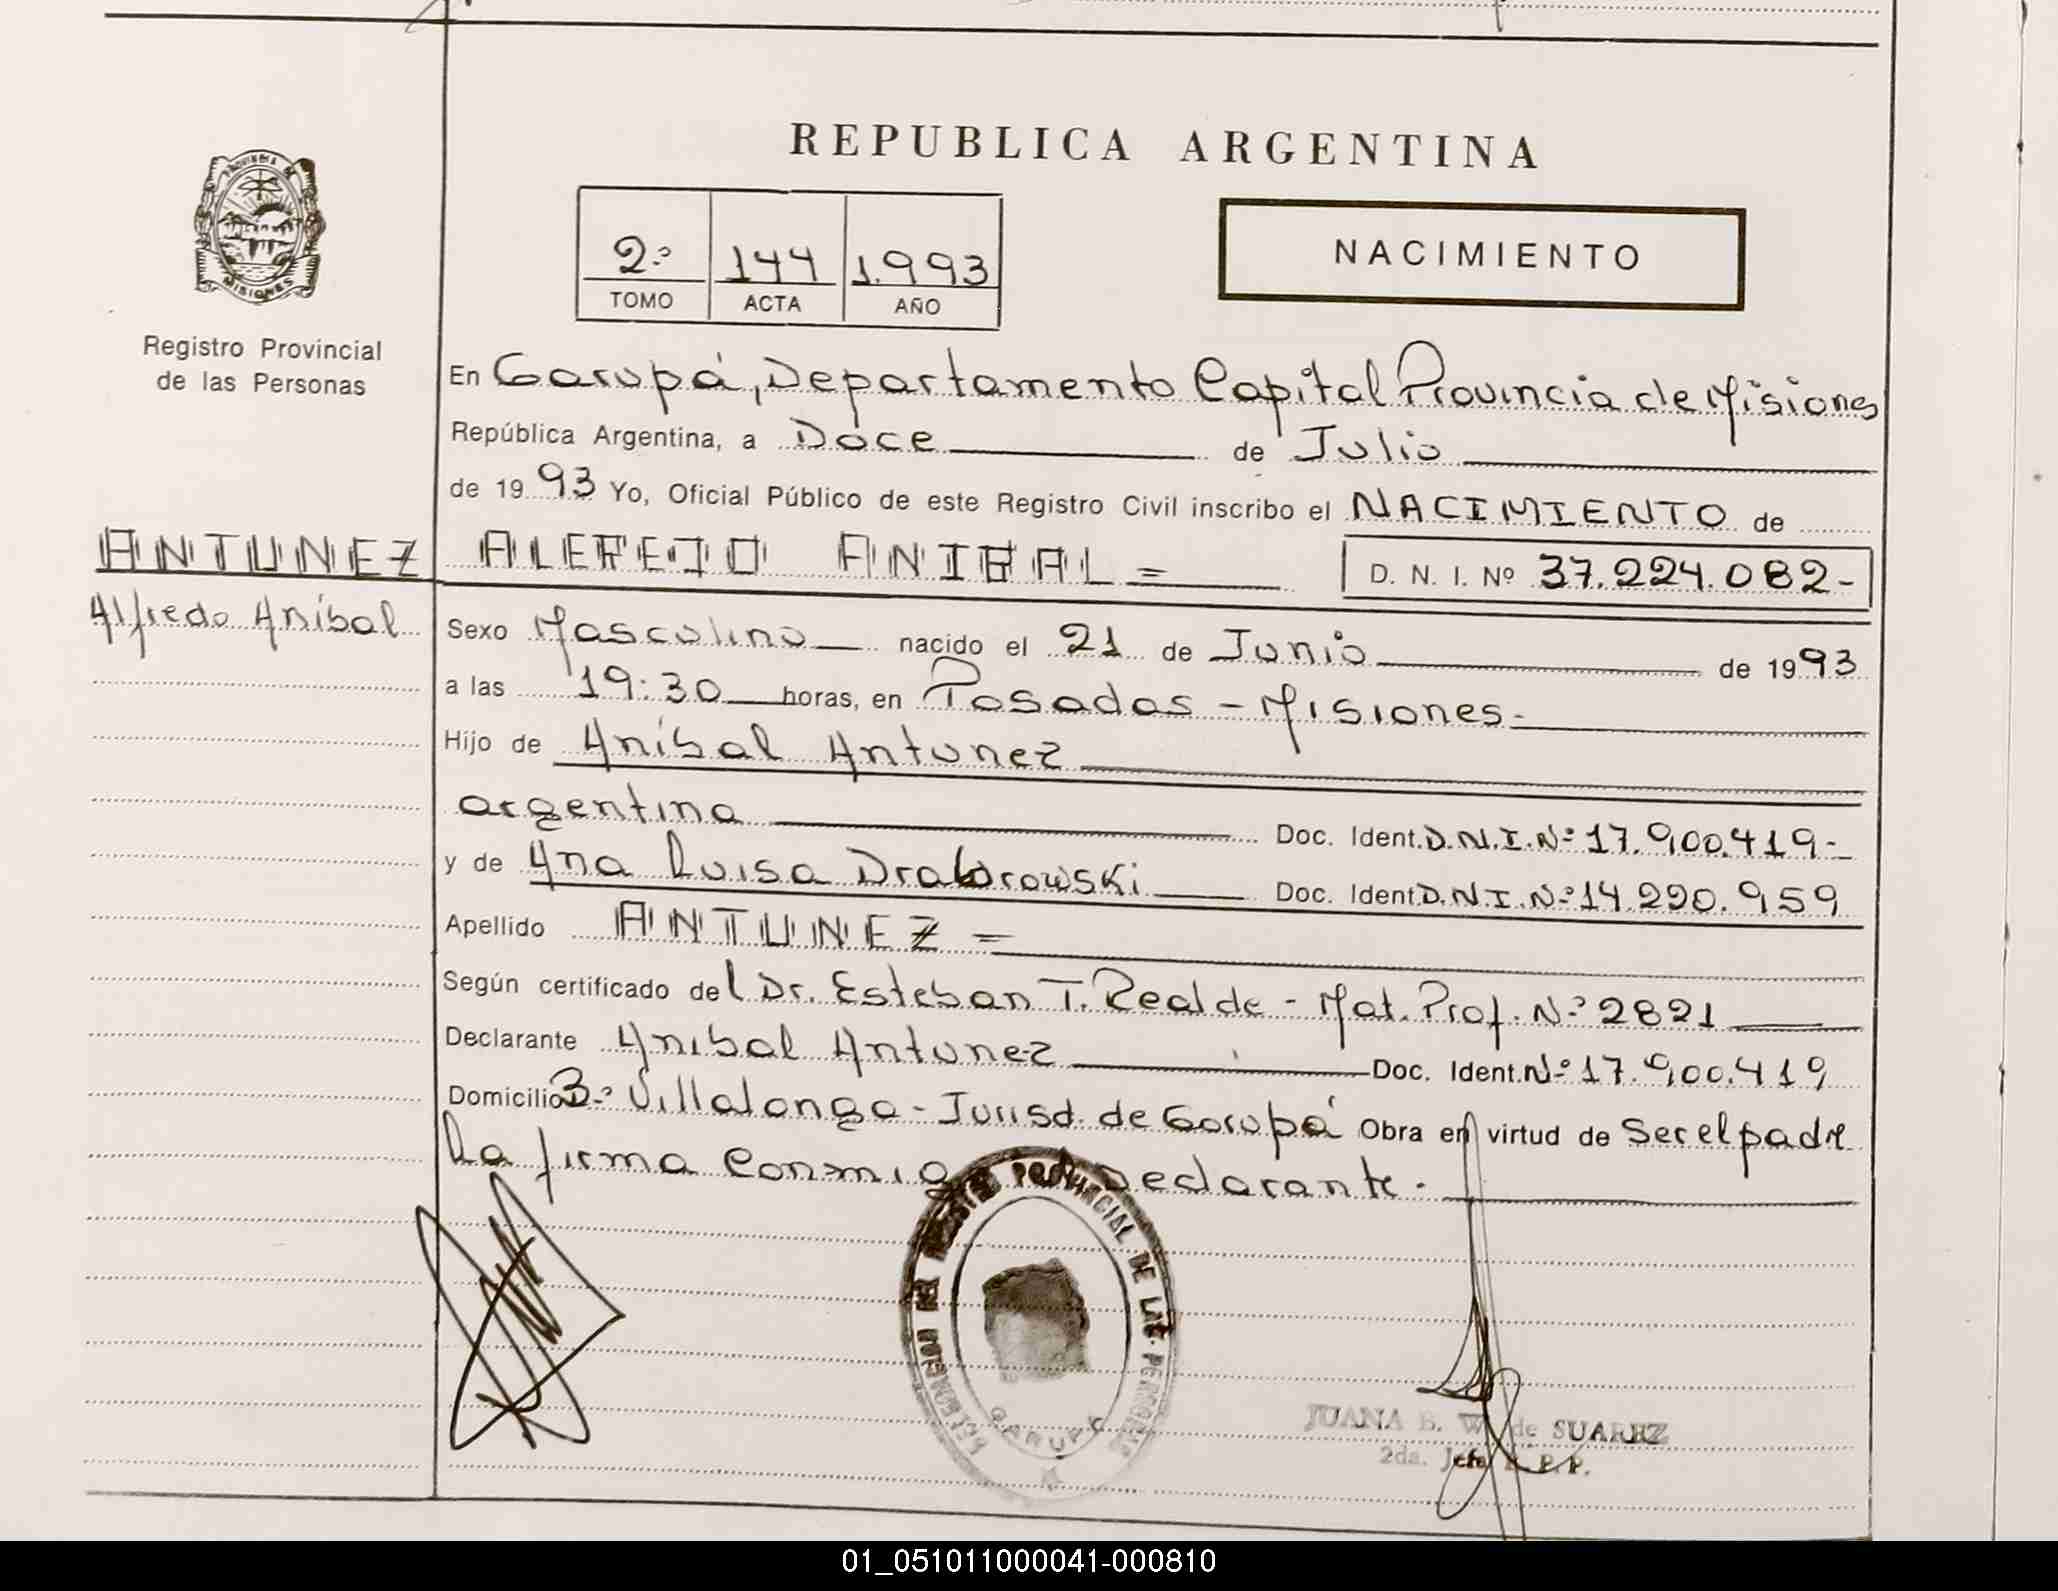 REPUBLICA ARGENTINA
PROVINCIA DE
MISIONES
Registro Provincial
de las Personas
2º 144 1.993
TOMO ACTA AÑO
NACIMIENTO
En Garupá, Departamento Capital Provincia de Misiones
República Argentina, a Doce de Julio
de 1993 Yo, Oficial Público de este Registro Civil inscribo el NACIMIENTO de
ANTUNEZ ALFREDO ANIBAL = D. N. I. Nº 37.224.082-
Alfredo Aníbal
Sexo Masculino nacido el 21 de Junio de 1993
a las 19:30 horas, en Posadas - Misiones-
Hijo de Aníbal Antunez
argentina Doc. Ident. D.N.I.Nº 17.900.419-
y de Ana Luisa Drabrowski Doc. Ident. D.N.I.Nº 14.290.959
Apellido ANTUNEZ =
Según certificado del Dr. Esteban T. Realde - Mat. Prof. Nº 2821
Declarante Anibal Antunez Doc. Ident. Nº 17.900.419
Domicilio Bº Villalonga - Jurisd. de Garupá Obra en virtud de Ser el padre
La firma Conmigo Declarante.
REGISTRO PROVINCIAL DE LAS PERSONAS
GARUPA
JUANA B. W. de SUAREZ
2da. Jefe R.P.P.
01_051011000041-000810